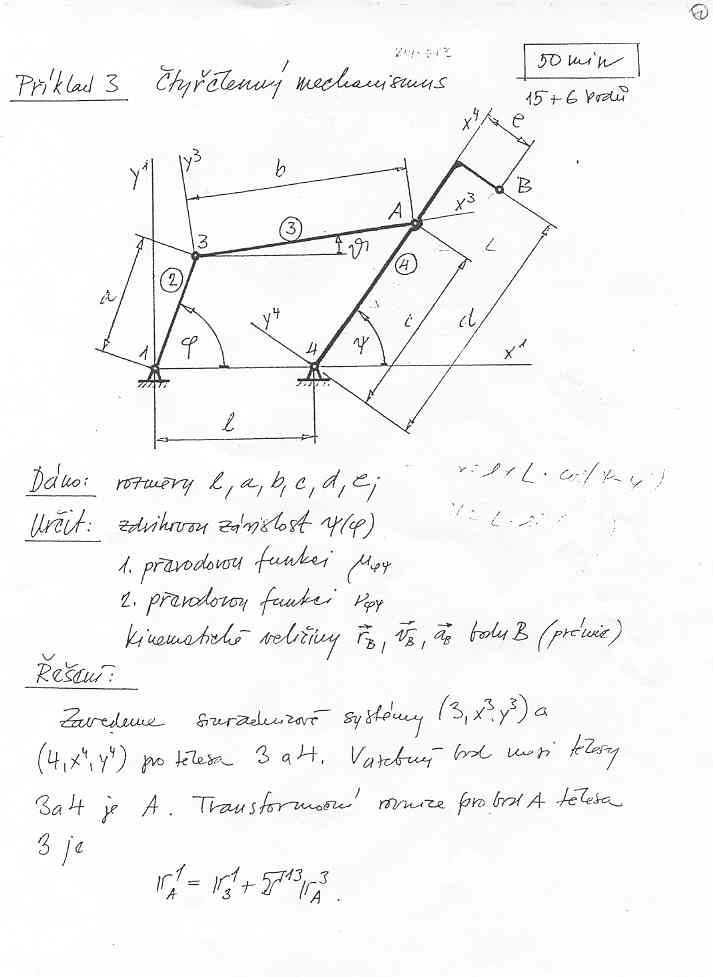 50 min
Příklad 3 Čtyřčlenný mechanismus
15 + 6 bodů
x⁴
e
y¹
y³
b
B
A
x³
3
③
ϑ
L
②
④
a
y⁴
c
d
1
φ
4
ψ
x¹
l
Dáno: rozměry l, a, b, c, d, e;
Určit: zdvihovou závislost ψ(φ)
1. převodovou funkci μφψ
2. převodovou funkci νφψ
Kinematické veličiny r⃗B, v⃗B, a⃗B bodu B (prémie)
Řešení:
Zavedeme souřadnicové systémy (3, x³, y³) a
(4, x⁴, y⁴) pro tělesa 3 a 4. Vazebný bod mezi tělesy
3 a 4 je A. Transformační rovnice pro bod A tělesa
3 je